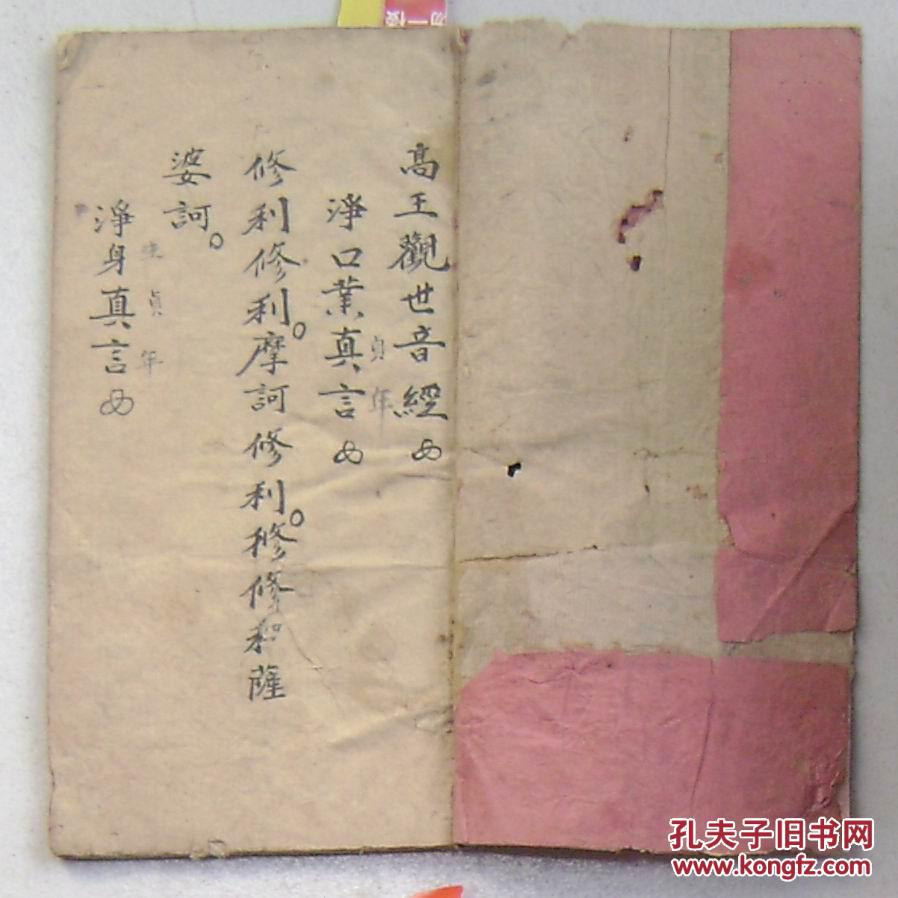 高王觀世音經
淨口業真言
貞年
修利修利。摩訶修利。修修利薩
婆訶。
貞年
淨身真言
孔夫子旧书网
www.kongfz.com